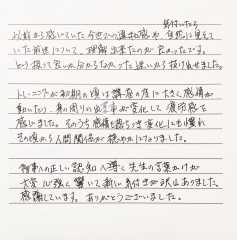 気付いたら
以前から感じていた今世での違和感や、自然に見えて
いた前世について、理解出来たのが良かったです。
どう扱って良いか分からなかった迷いから抜け出せました。
トレーニングが初期の頃は講座の度に大きく感情が
動いたり、身の周りの出来事が変化して疲労感を
感じました。そのうち感情も落ちつき変化にも慣れ
その頃から人間関係が穏やかになりました。
物事への正しい認知へ導く先生の言葉がけが
大変心強く響いて新たな気付きが沢山ありました。
感謝しています。ありがとうございました。